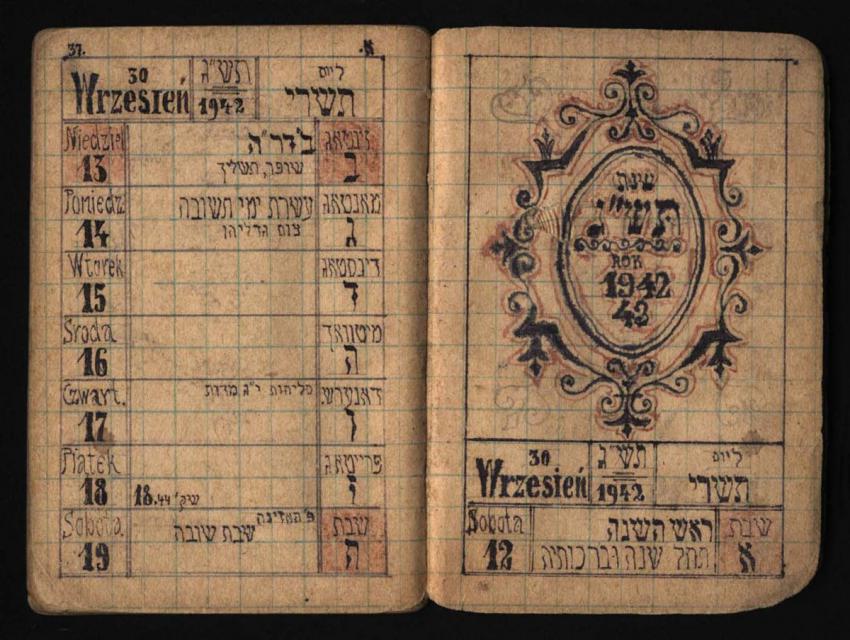 שנת
תש"ג
ROK
1942
42
30 תש"ג ל' יום
Wrzesień 1942 תשרי
Sobota ראש השנה שבת
12 תחל שנה וברכותיה א
37. א.
30 תש"ג ל' יום
Wrzesień 1942 תשרי
Niedziel ב' דר"ה זונטאג
13 שופר, תשליך ב
Poniedz עשרת ימי תשובה מאנטאג
14 צום גדליהו ג
Wtorek דינסטאג
15 ד
Środa מיטוואך
16 ה
Czwart. סליחות י"ג מדות דאנערש.
17 ו
Piątek פרייטאג
18 18.44 שק' ז
Sobota פ' האזינה שבת
19 שבת שובה ח